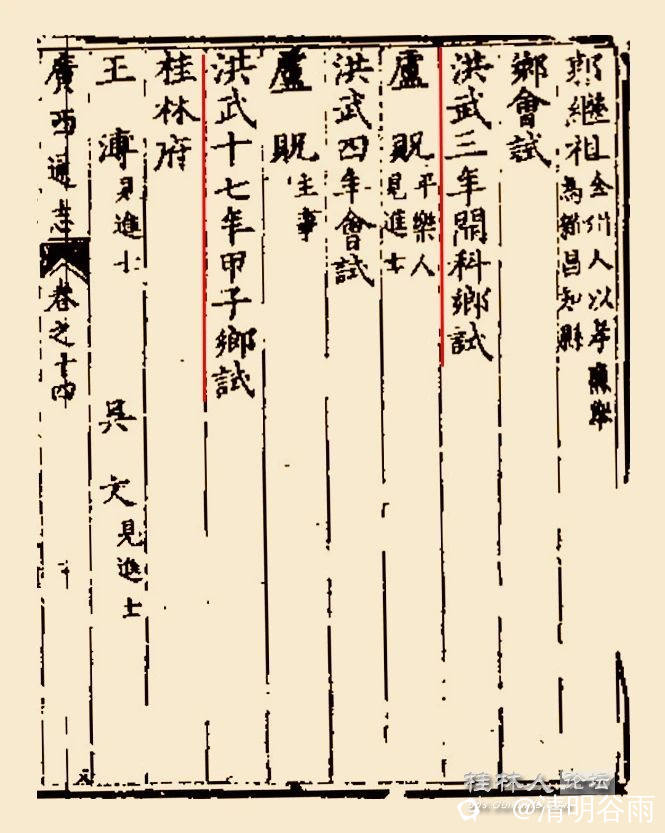 郭繼祖全州人以孝廉舉
為都昌知縣
鄉會試
洪武三年開科鄉試
盧貺平樂人
見進士
洪武四年會試
盧貺主事
洪武十七年甲子鄉試
桂林府
王溥見進士 吳文見進士
廣西通志 卷之十四
桂林人论坛
@清明谷雨